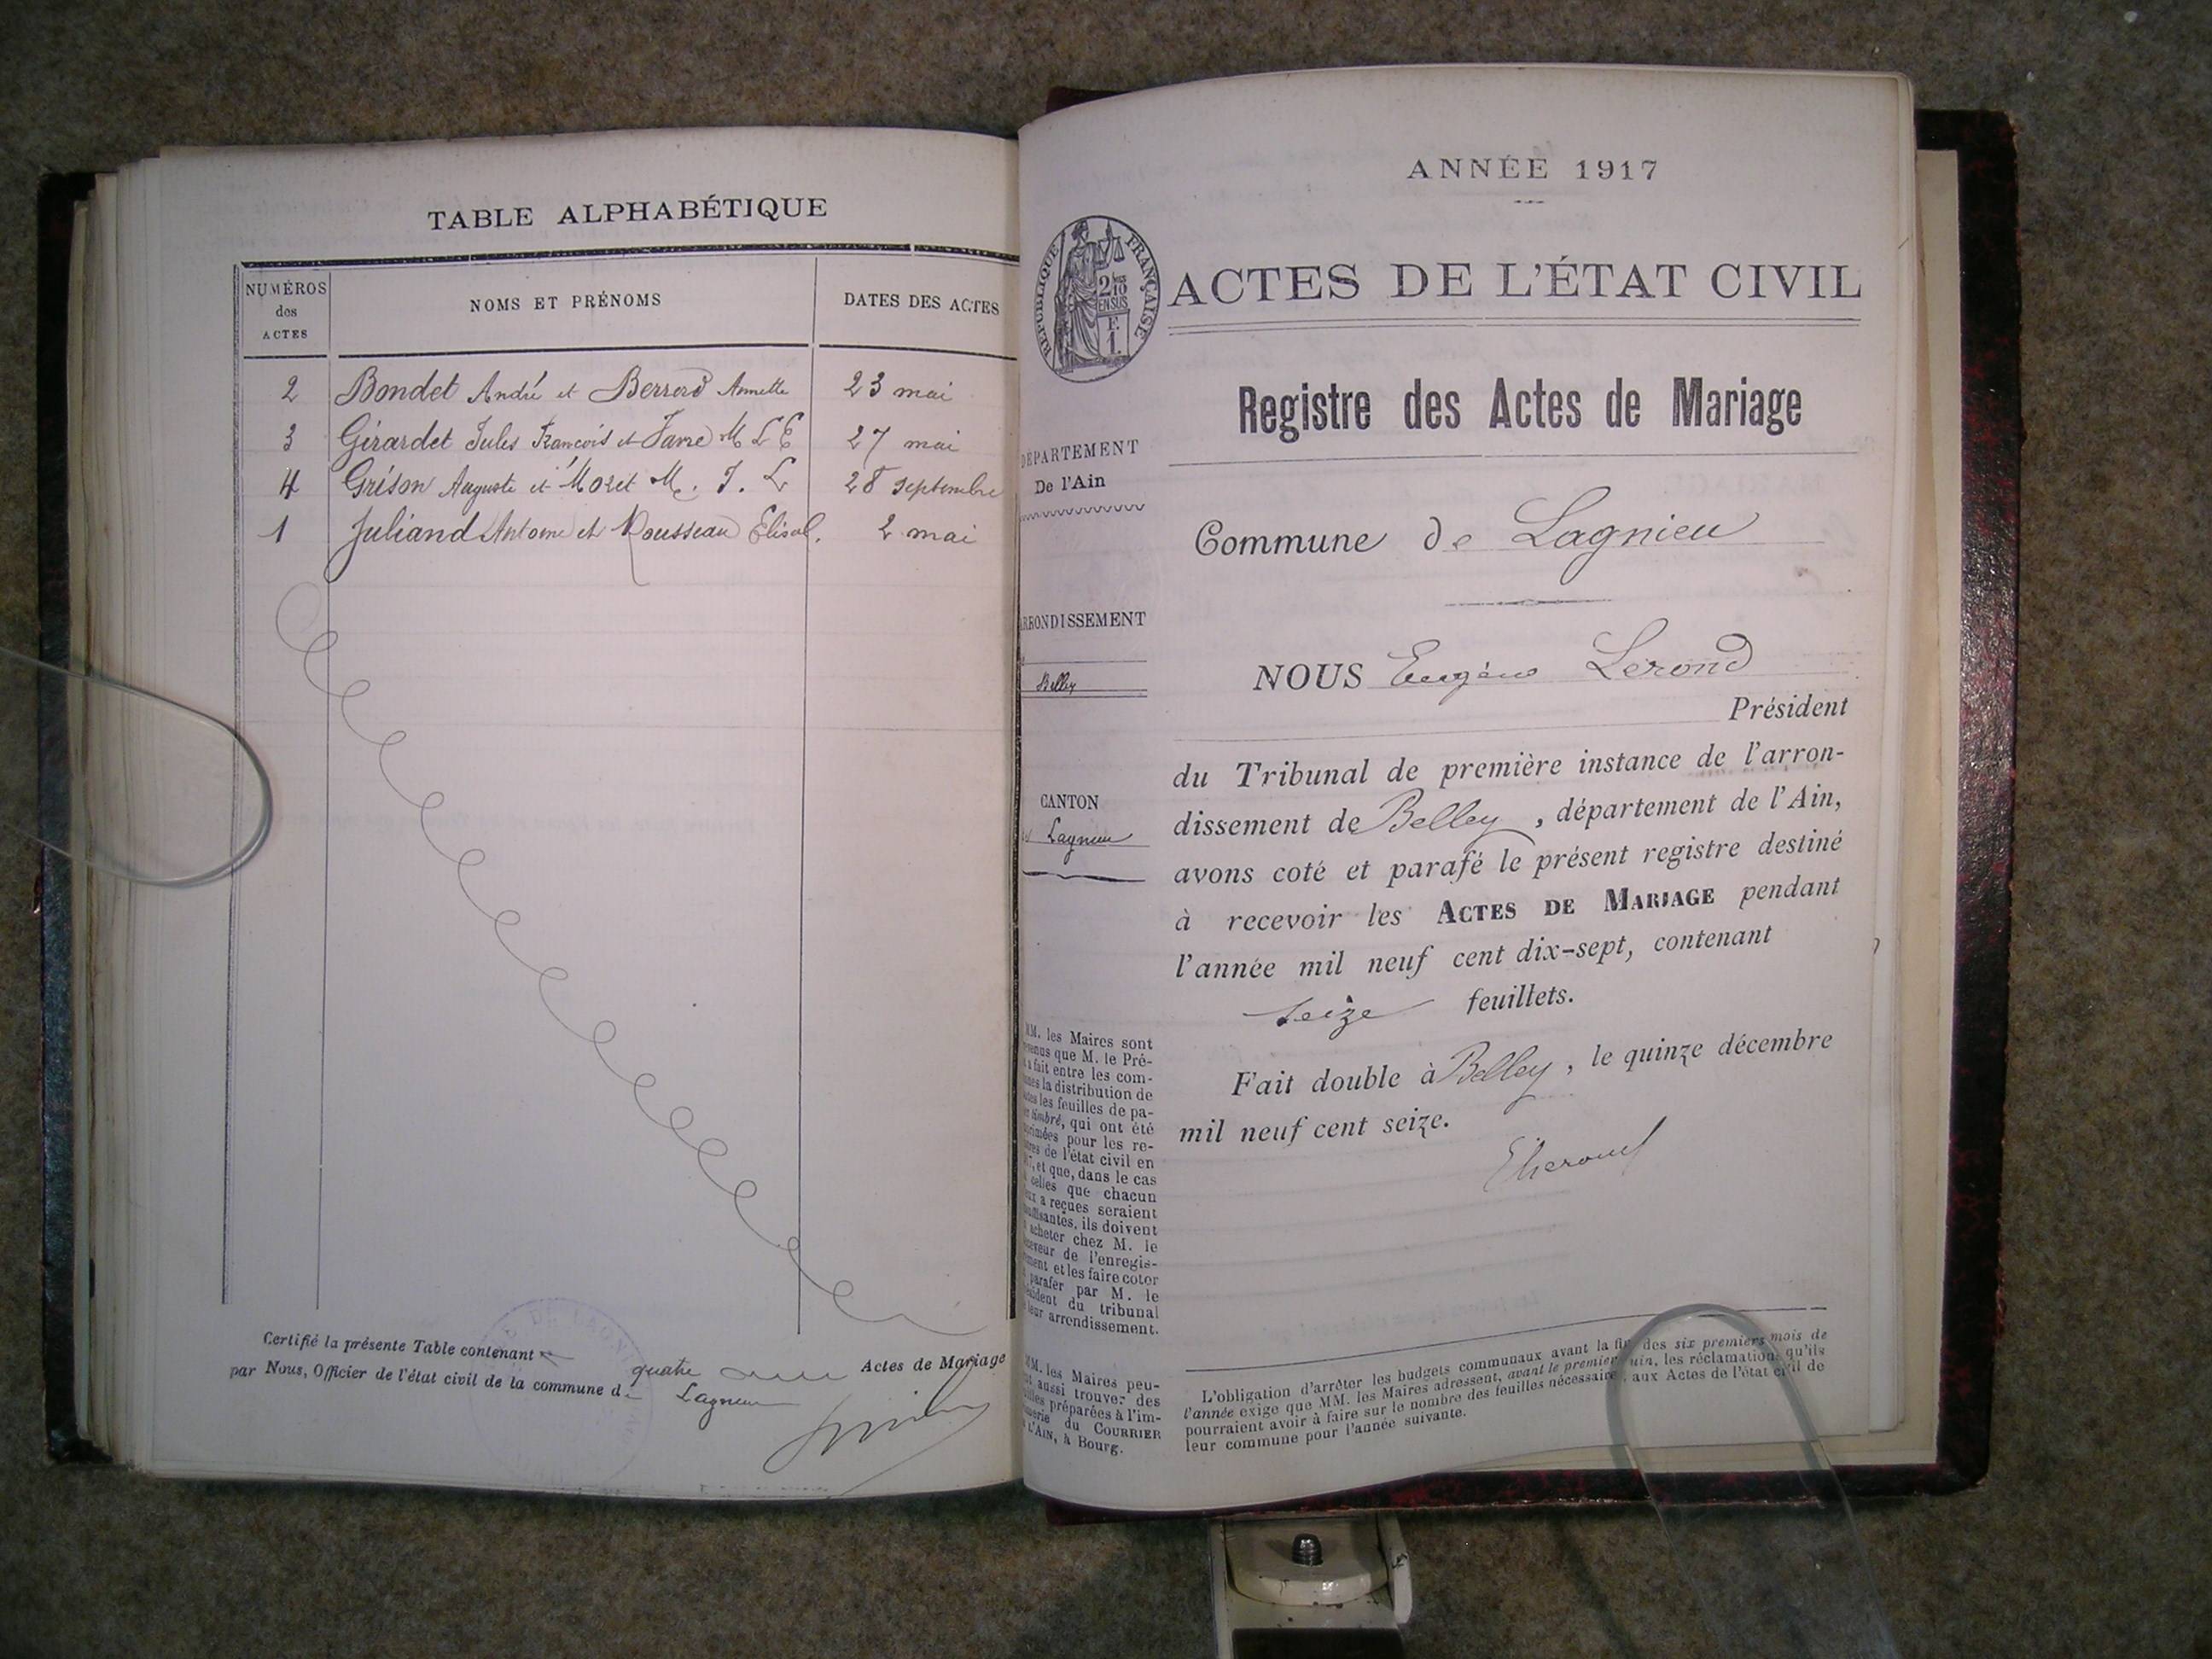 TABLE ALPHABÉTIQUE
NUMÉROS
des
ACTES
NOMS ET PRÉNOMS
DATES DES ACTES
2 Bondet André et Berrord Annette 23 mai
3 Girardet Jules François et Favre M L E 27 mai
4 Grison Auguste et Moret M. J. L 28 septembre
1 Juliand Antoine et Rousseau Elisab. 2 mai
Certifié la présente Table contenant quatre Actes de Mariage
par Nous, Officier de l'état civil de la commune de Lagnieu
ANNÉE 1917
RÉPUBLIQUE FRANÇAISE
2/10
EN SUS
F.
1.
ACTES DE L'ÉTAT CIVIL
Registre des Actes de Mariage
DÉPARTEMENT
De l'Ain
Commune de Lagnieu
ARRONDISSEMENT
Belley
NOUS Eugène Lerond
Président
du Tribunal de première instance de l'arron-
dissement de Belley, département de l'Ain,
avons coté et parafé le présent registre destiné
à recevoir les ACTES DE MARIAGE pendant
l'année mil neuf cent dix-sept, contenant
seize feuillets.
Fait double à Belley, le quinze décembre
mil neuf cent seize.
CANTON
Lagnieu
MM. les Maires sont
que M. le Pré-
a fait entre les com-
la distribution de
les feuilles de pa-
timbré, qui ont été
pour les re-
de l'état civil en
et que, dans le cas
celles que chacun
a reçues seraient
ils doivent
acheter chez M. le
de l'enregis-
et les faire coter
parafer par M. le
du tribunal
leur arrondissement.
MM. les Maires peu-
aussi trouver des
préparées à l'im-
du COURRIER
L'AIN, à Bourg.
L'obligation d'arrêter les budgets communaux avant la fin des six premiers mois de
l'année exige que MM. les Maires adressent, avant le premier juin, les réclamations qu'ils
pourraient avoir à faire sur le nombre des feuilles nécessaires aux Actes de l'état civil de
leur commune pour l'année suivante.